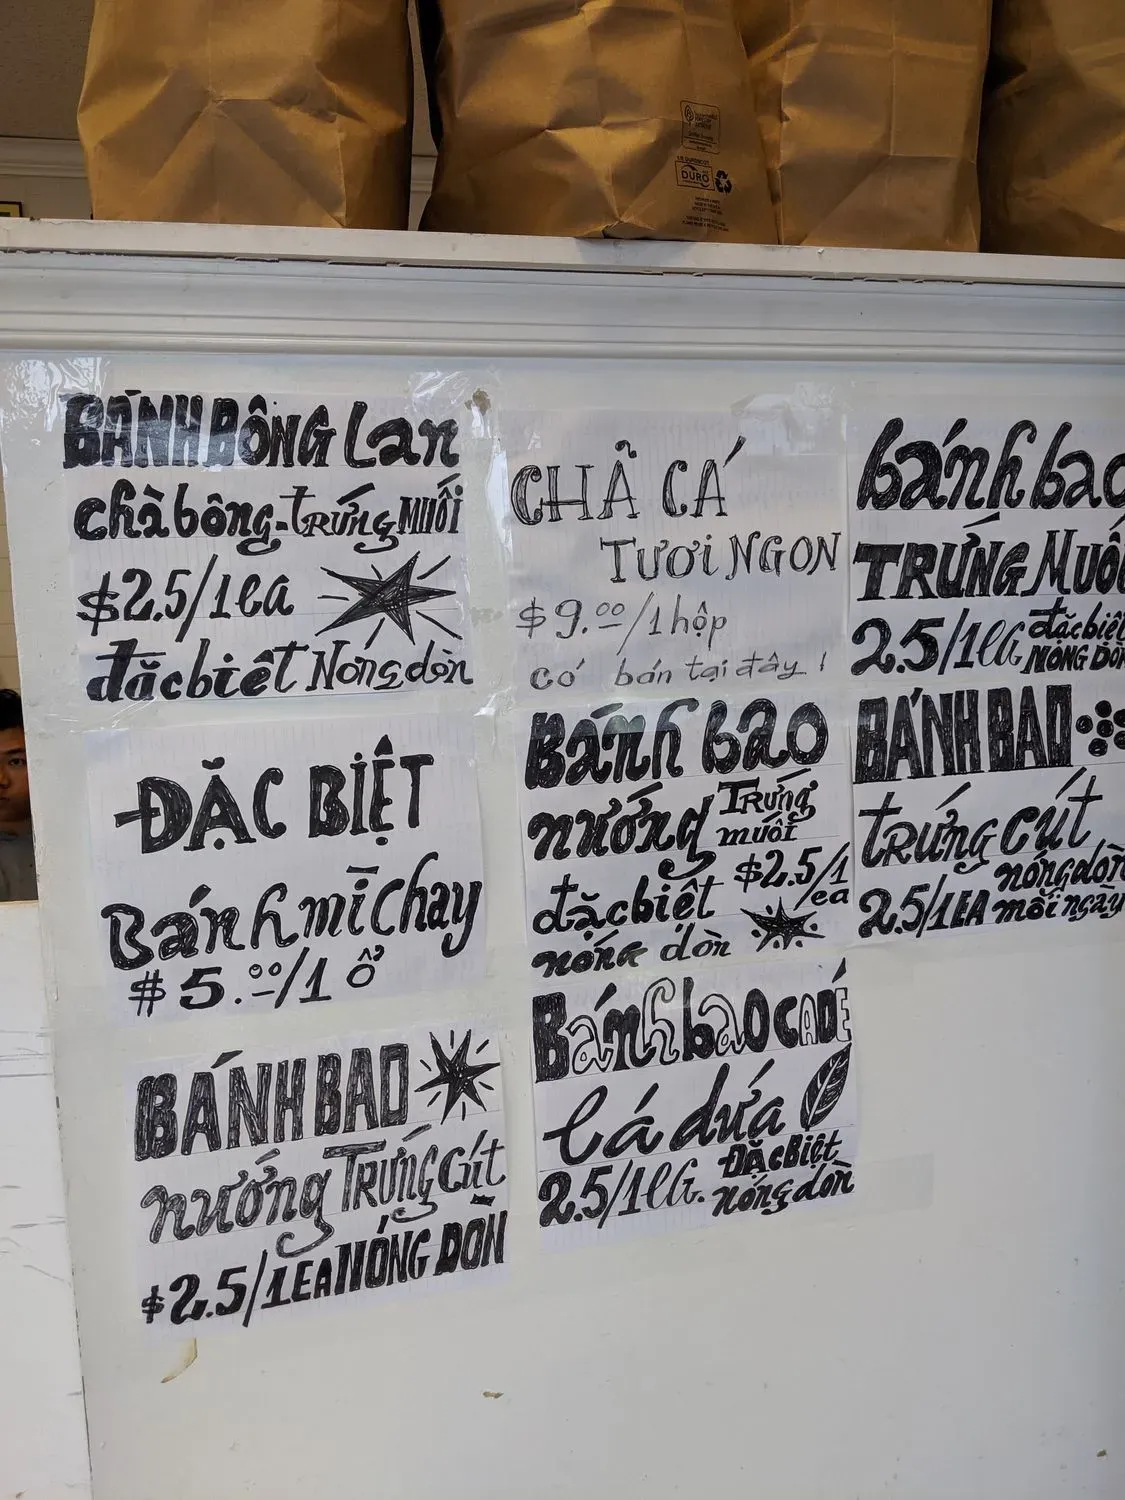 DURO
BÁNH BÔNG Lan
chà bông-trứng MUỐI
$2.5/1ea
đặc biệt Nóng dòn
CHẢ CÁ
TƯƠI NGON
$9.00/1 hộp
có bán tại đây !
bánh bao
TRỨNG MUỐI
2.5/1ea đặc biệt
NÓNG DÒN
ĐẶC BIỆT
Bánh mì Chay
$5.00/1 ổ
Bánh bao
nướng Trứng
muối
đặc biệt $2.5/1
ea
nóng dòn
BÁNH BAO
trứng cút
nóng dòn
2.5/1EA mỗi ngày
BÁNH BAO
nướng Trứng Cút
$2.5/1EA NÓNG DÒN
Bánh bao CADÉ
lá dứa
2.5/1ea. Đặc Biệt
nóng dòn